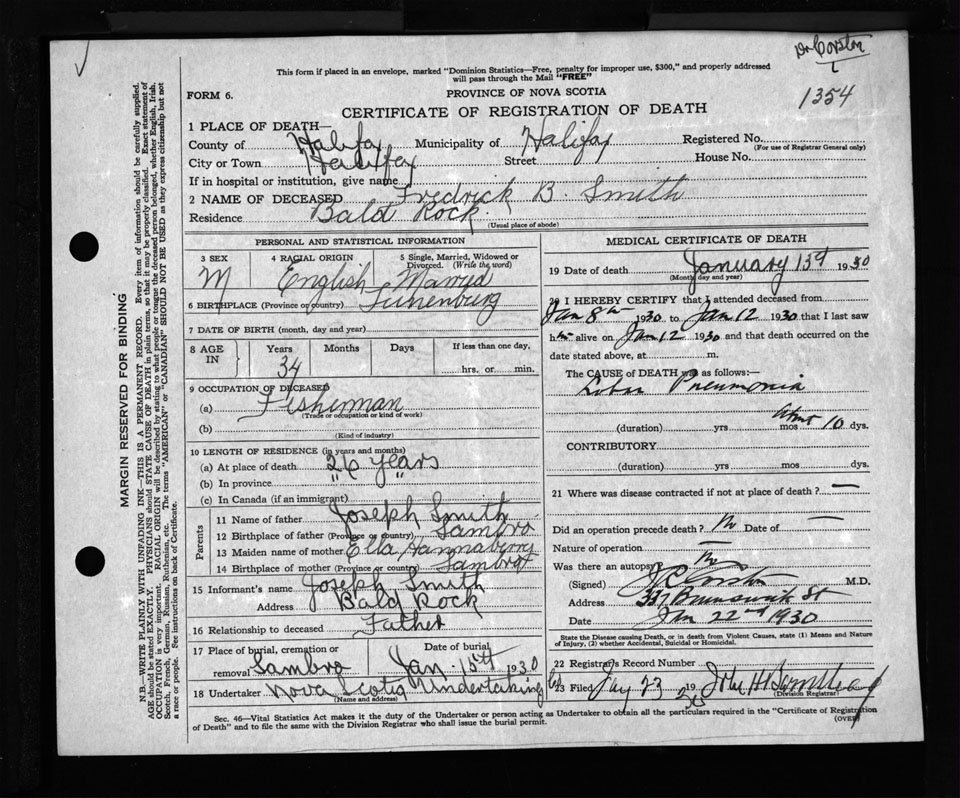 Dr Corston
This form if placed in an envelope, marked "Dominion Statistics—Free, penalty for improper use, $300," and properly addressed
will pass through the Mail "FREE"
1354
FORM 6.
PROVINCE OF NOVA SCOTIA
CERTIFICATE OF REGISTRATION OF DEATH
1 PLACE OF DEATH—
County of Halifax Municipality of Halifax Registered No.
(For use of Registrar General only)
City or Town Halifax Street House No.
If in hospital or institution, give name
2 NAME OF DECEASED Fredrick B. Smith
Residence Bald Rock
(Usual place of abode)
PERSONAL AND STATISTICAL INFORMATION
3 SEX 4 RACIAL ORIGIN 5 Single, Married, Widowed or
Divorced. (Write the word)
M English Married
6 BIRTHPLACE (Province or country) Lunenburg
7 DATE OF BIRTH (month, day and year)
8 AGE IN Years Months Days If less than one day,
34 hrs. or min.
9 OCCUPATION OF DECEASED
(a) Fisherman
(Trade or occupation or kind of work)
(b)
(Kind of industry)
10 LENGTH OF RESIDENCE (in years and months)
(a) At place of death 26 years
(b) In province " "
(c) In Canada (if an immigrant)
Parents
11 Name of father Joseph Smith
12 Birthplace of father (Province or country) Sambro
13 Maiden name of mother Ella Hannaberry
14 Birthplace of mother (Province or country) Sambro
15 Informant's name Joseph Smith
Address Bald Rock
16 Relationship to deceased Father
17 Place of burial, cremation or Date of burial
removal Sambro Jan. 15th 1930
18 Undertaker Nova Scotia Undertaking Co
MEDICAL CERTIFICATE OF DEATH
19 Date of death January 13th 1930
(Month, day and year)
20 I HEREBY CERTIFY that I attended deceased from
Jan 8th 1930 to Jan 12 1930 that I last saw
him alive on Jan 12 1930 and that death occurred on the
date stated above, at m.
The CAUSE of DEATH was as follows:
Lobar Pneumonia
(duration) yrs mos about 10 dys.
CONTRIBUTORY
(duration) yrs mos dys.
21 Where was disease contracted if not at place of death? —
Did an operation precede death? No Date of —
Nature of operation —
Was there an autopsy? No
(Signed) Corston M.D.
Address 337 Brunswick St
Date Jan 22nd 1930
State the Disease causing Death, or in death from Violent Causes, state (1) Means and Nature
of Injury, (2) whether Accidental, Suicidal or Homicidal.
22 Registrar's Record Number
23 Filed Jany 23 1930 John H
(Division Registrar)
Sec. 46—Vital Statistics Act makes it the duty of the Undertaker or person acting as Undertaker to obtain all the particulars required in the "Certificate of Registration
of Death" and to file the same with the Division Registrar who shall issue the burial permit.
(OVER)
MARGIN RESERVED FOR BINDING
N.B.—WRITE PLAINLY WITH UNFADING INK—THIS IS A PERMANENT RECORD. Every item of information should be carefully supplied.
AGE should be stated EXACTLY. PHYSICIANS should STATE CAUSE OF DEATH in plain terms, so that it may be properly classified. Exact statement of
OCCUPATION is very important. RACIAL ORIGIN will be described by stating to what people or tongue the deceased person belonged, whether English, Irish,
Scotch, French, German, Russian, Ruthenian, etc. The terms "AMERICAN" or "CANADIAN" SHOULD NOT BE USED as they express citizenship but not
a race or people. See instructions on back of Certificate.